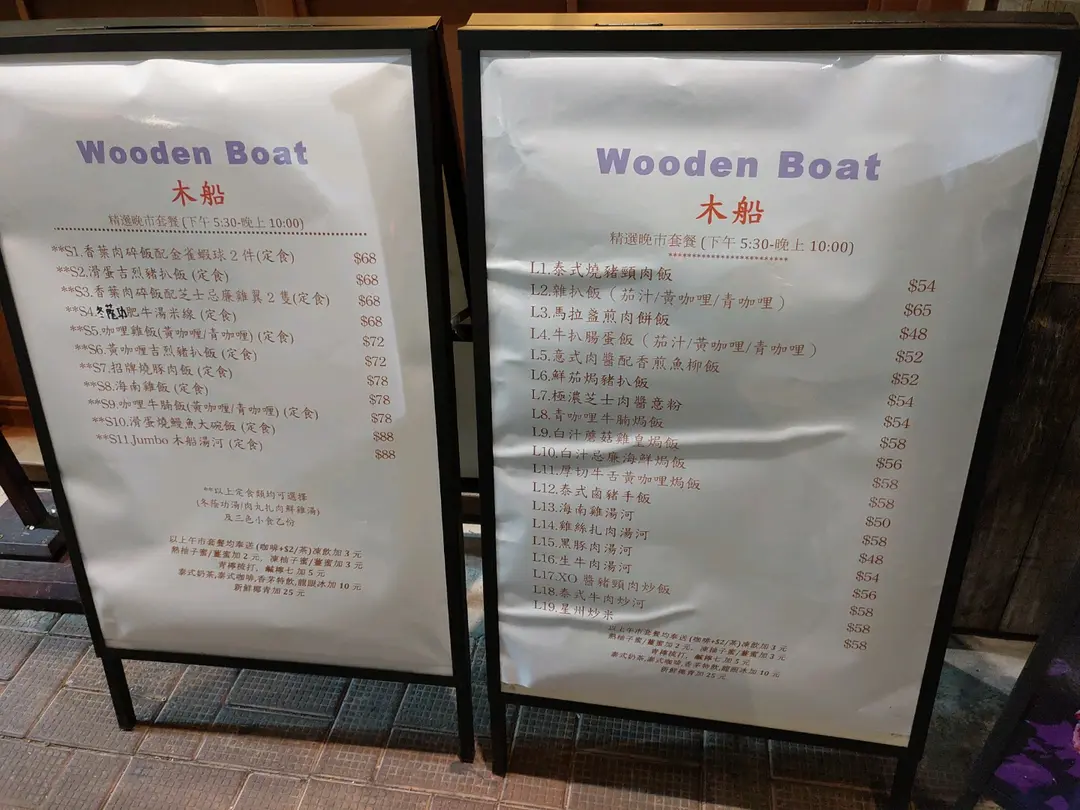 Wooden Boat
木船
精選晚市套餐 (下午 5:30-晚上 10:00)
**S1.香葉肉碎飯配金雀蝦球 2 件(定食) $68
**S2.滑蛋吉烈豬扒飯 (定食) $68
**S3.香葉肉碎飯配芝士忌廉雞翼 2 隻(定食) $68
**S4.冬蔭功肥牛湯米線 (定食) $68
**S5.咖喱雞飯(黃咖喱/青咖喱) (定食) $72
**S6.黃咖喱吉烈豬扒飯 (定食) $72
**S7.招牌燒豚肉飯 (定食) $78
**S8.海南雞飯 (定食) $78
**S9.咖喱牛腩飯(黃咖喱/青咖喱) (定食) $78
**S10.滑蛋燒鰻魚大碗飯 (定食) $88
**S11.Jumbo 木船湯河 (定食) $88
**以上定食類均可選擇
(冬蔭功湯/肉丸扎肉鮮雞湯)
及三色小食乙份
以上午市套餐均奉送 (咖啡+$2/茶)凍飲加 3 元
熱柚子蜜/薑蜜加 2 元、凍柚子蜜/薑蜜加 3 元
青檸梳打、鹹檸七 加 5 元
泰式奶茶,泰式咖啡,香茅特飲,龍眼冰加 10 元
新鮮椰青加 25 元
Wooden Boat
木船
精選晚市套餐 (下午 5:30-晚上 10:00)
L1.泰式燒豬頸肉飯 $54
L2.雜扒飯 (茄汁/黃咖哩/青咖哩) $65
L3.馬拉盞煎肉餅飯 $48
L4.牛扒腸蛋飯 (茄汁/黃咖哩/青咖哩) $52
L5.意式肉醬配香煎魚柳飯 $52
L6.鮮茄焗豬扒飯 $54
L7.極濃芝士肉醬意粉 $54
L8.青咖哩牛腩焗飯 $58
L9.白汁蘑菇雞皇焗飯 $56
L10.白汁忌廉海鮮焗飯 $58
L11.厚切牛舌黃咖哩焗飯 $58
L12.泰式鹵豬手飯 $50
L13.海南雞湯河 $58
L14.雞絲扎肉湯河 $48
L15.黑豚肉湯河 $54
L16.生牛肉湯河 $56
L17.XO 醬豬頸肉炒飯 $58
L18.泰式牛肉炒河 $58
L19.星州炒米 $58
以上午市套餐均奉送 (咖啡+$2/茶)凍飲加 3 元
熱柚子蜜/薑蜜加 2 元、凍柚子蜜/薑蜜加 3 元
青檸梳打、鹹檸七 加 5 元
泰式奶茶,泰式咖啡,香茅特飲,龍眼冰加 10 元
新鮮椰青加 25 元